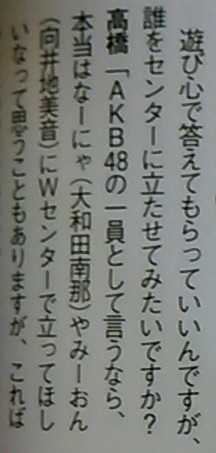 遊び心で答えてもらっていいんですが、
誰をセンターに立たせてみたいですか？
高橋「AKB48の一員として言うなら、
本当はなーにゃ（大和田南那）やみーおん
（向井地美音）にWセンターで立ってほし
いなって思うこともありますが、これば